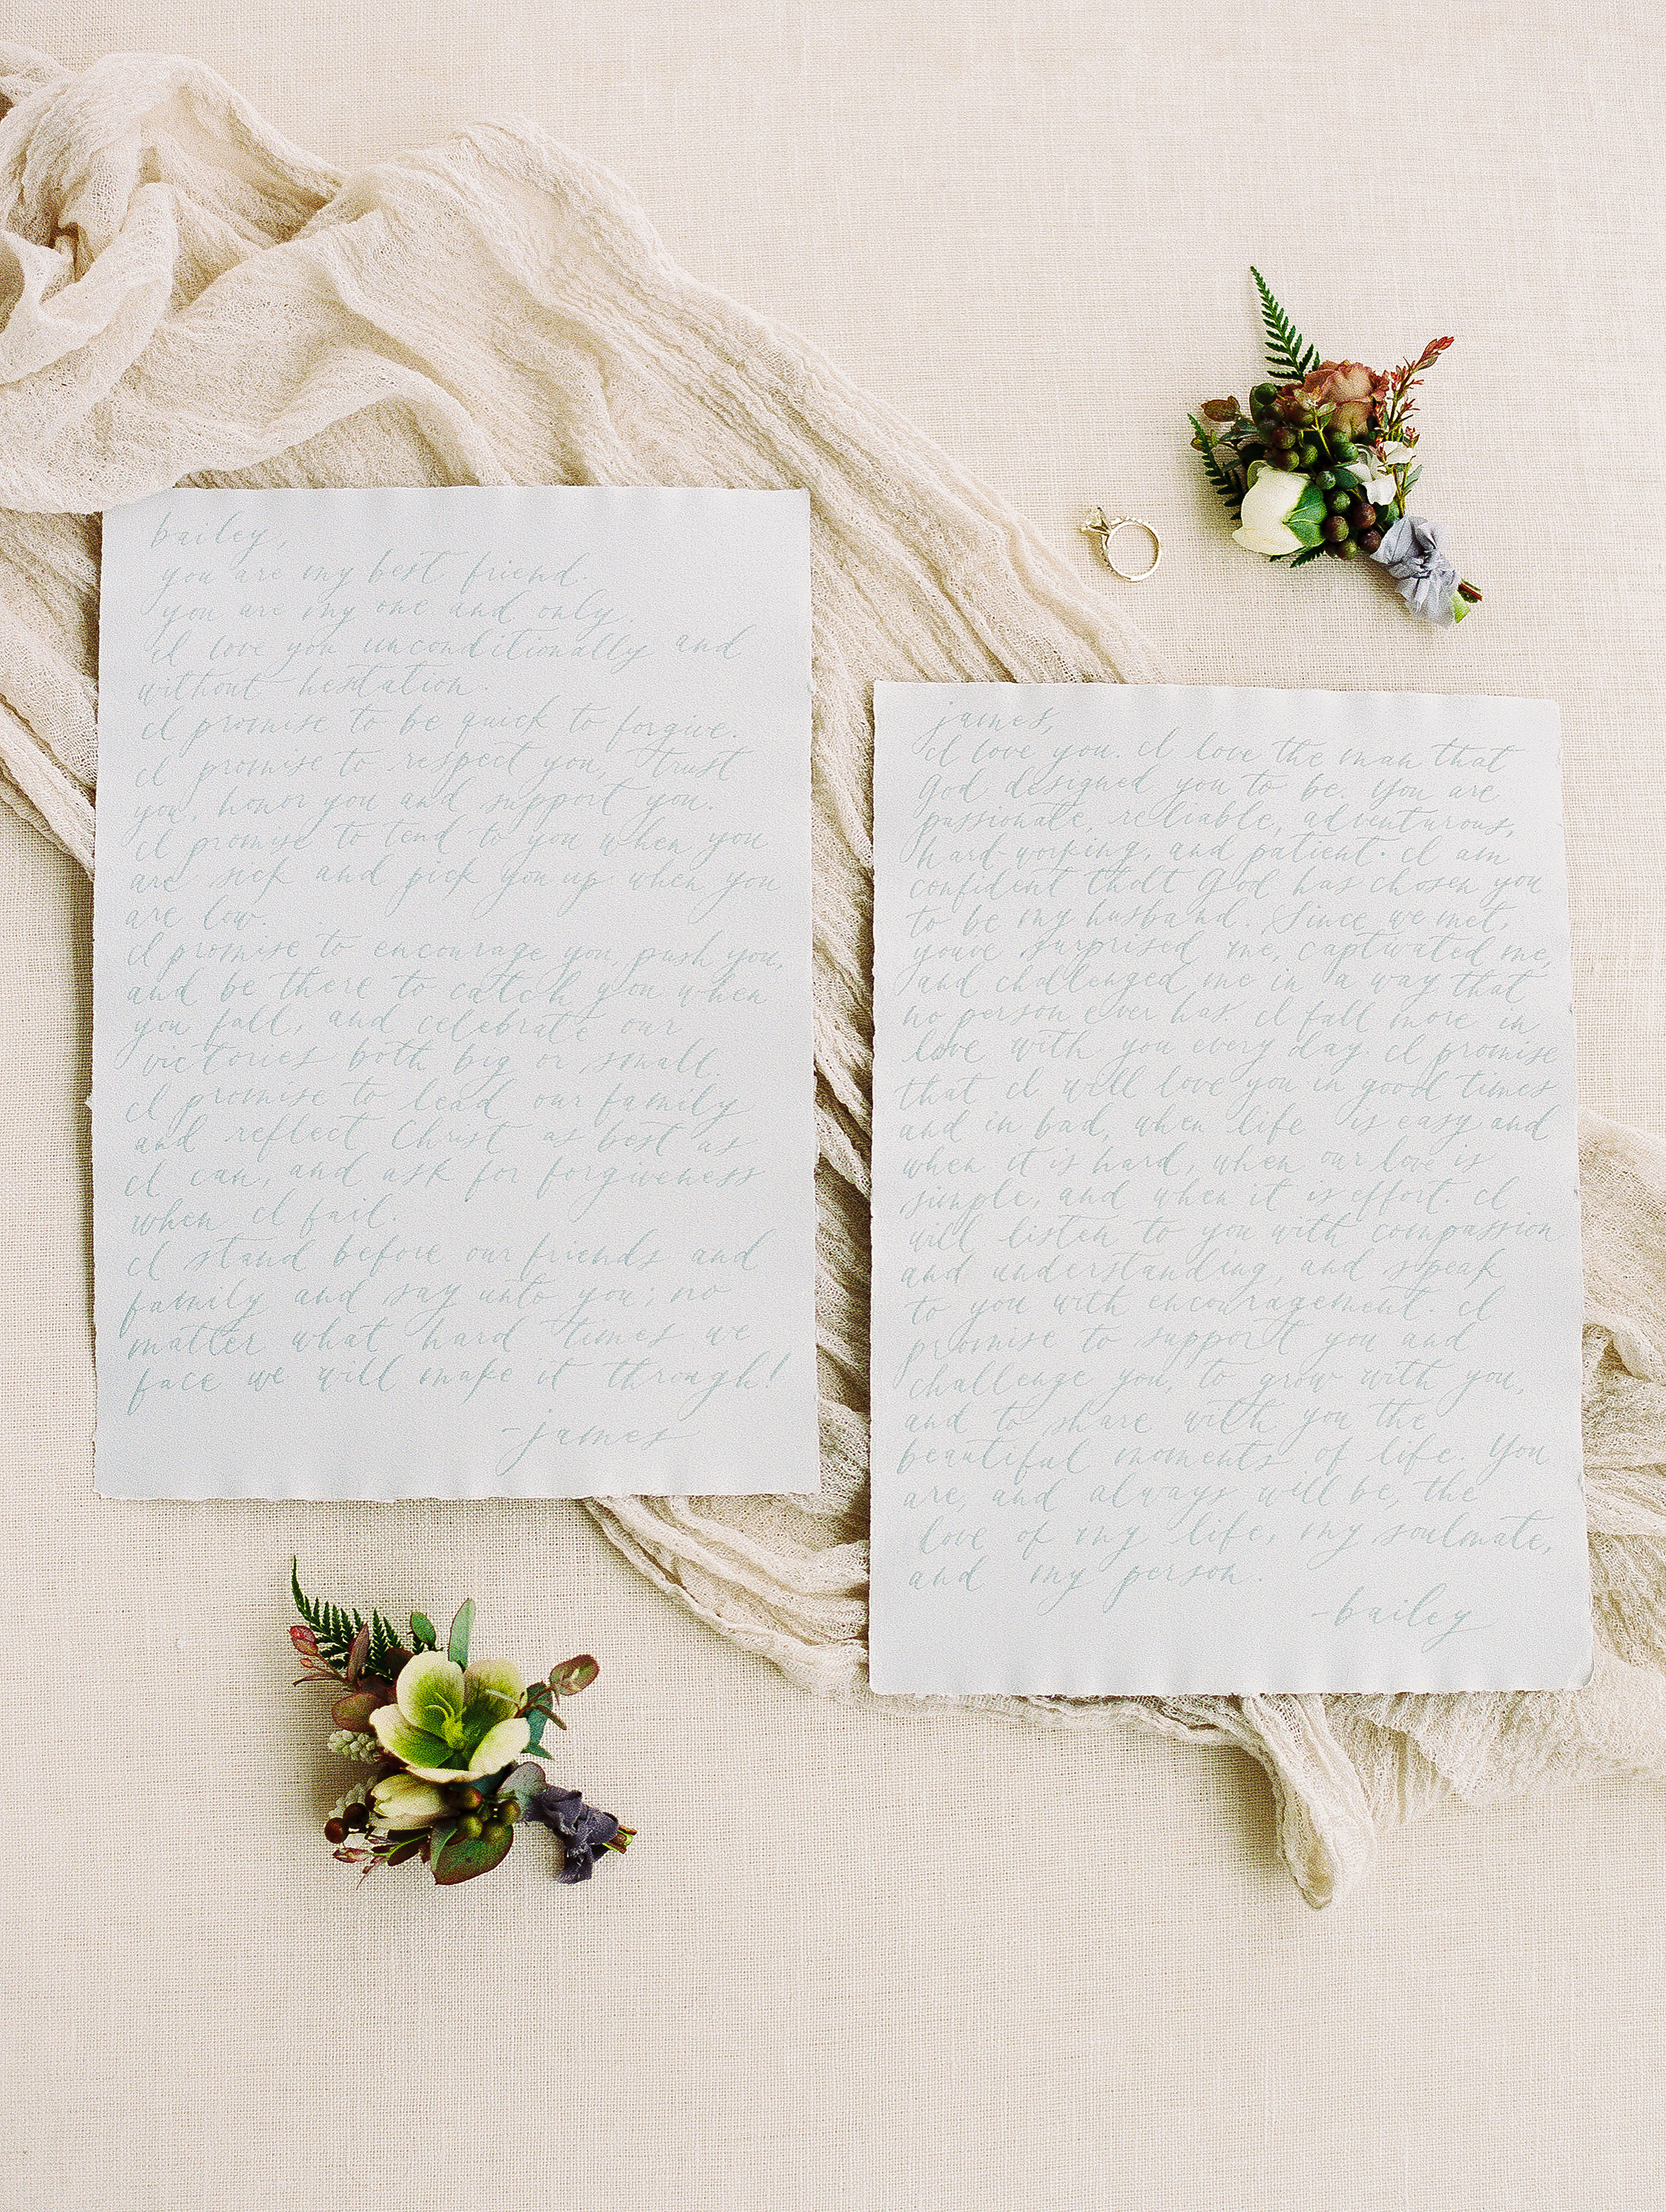 bailey,
you are my best friend.
you are my one and only.
I love you unconditionally and
without hesitation.
I promise to be quick to forgive.
I promise to respect you, trust
you, honor you and support you.
I promise to tend to you when you
are sick and pick you up when you
are low.
I promise to encourage you, push you,
and be there to catch you when
you fall, and celebrate our
victories both big or small.
I promise to lead our family
and reflect Christ as best as
I can, and ask for forgiveness
when I fail.
I stand before our friends and
family and say unto you; no
matter what hard times we
face we will make it through!
-james
james,
I love you. I love the man that
God designed you to be. You are
passionate, reliable, adventurous,
hard-working, and patient. I am
confident that God has chosen you
to be my husband. Since we met,
youve surprised me, captivated me,
and challenged me in a way that
no person ever has. I fall more in
love with you every day. I promise
that I will love you in good times
and in bad, when life is easy and
when it is hard, when our love is
simple, and when it is effort. I
will listen to you with compassion
and understanding, and speak
to you with encouragement. I
promise to support you and
challenge you, to grow with you,
and to share with you the
beautiful moments of life. You
are, and always will be, the
love of my life, my soulmate,
and my person.
-bailey